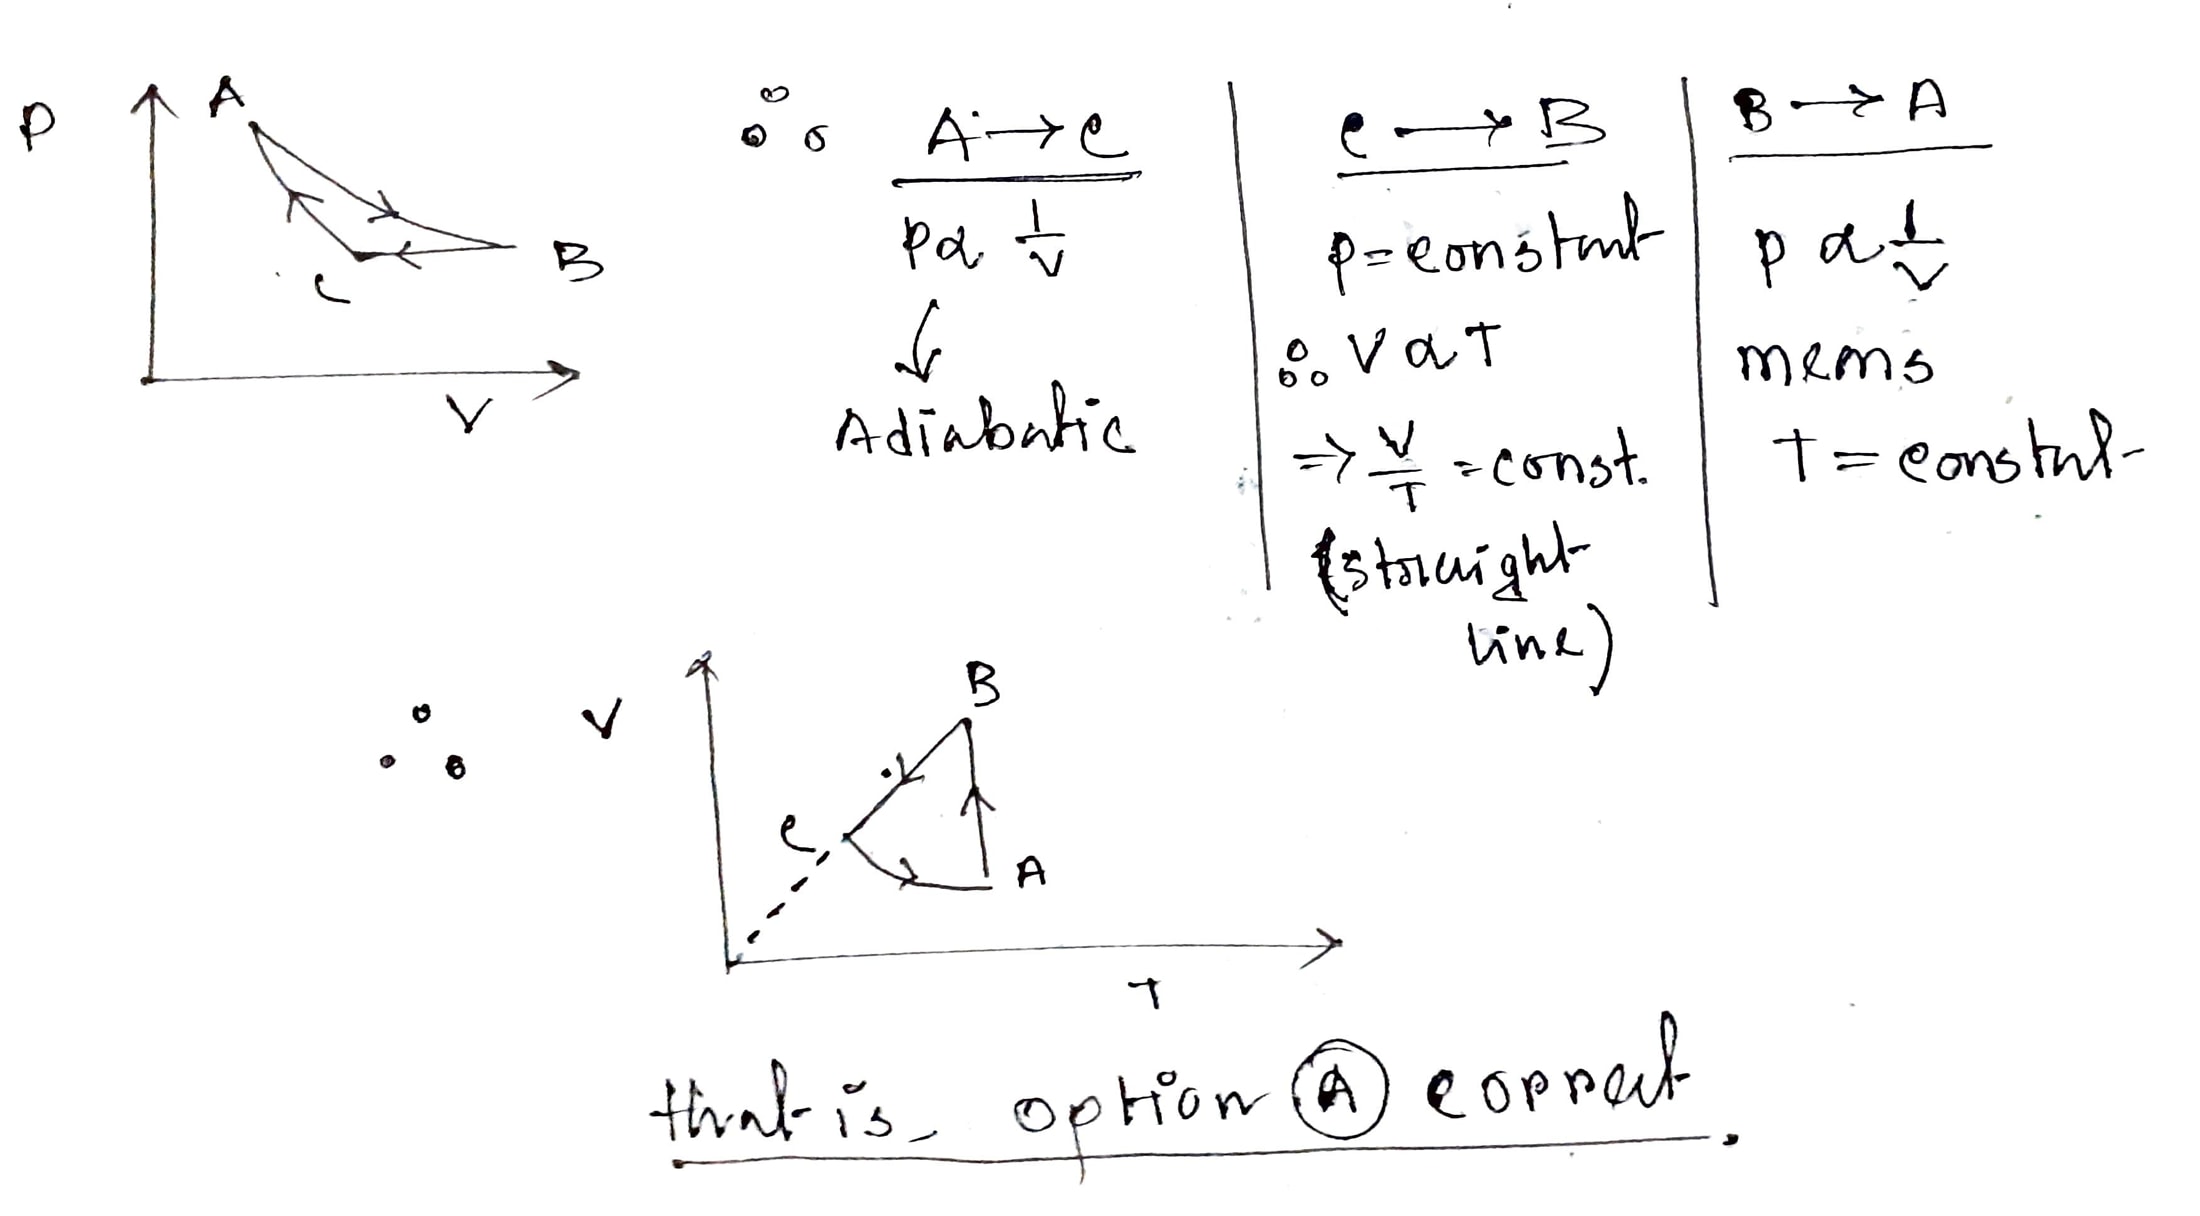 P
A
B
C
V
∴ A → C
P α 1/V
↓
Adiabatic
C → B
P = constant
∴ V α T
⇒ V/T = const.
(straight
line)
B → A
P α 1/V
means
T = constant
∴
V
B
C
A
T
that is, option (A) correct.